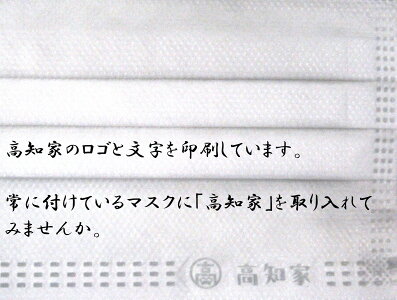 高知家のロゴと文字を印刷しています。
常に付けているマスクに「高知家」を取り入れて
みませんか。
高 高知家